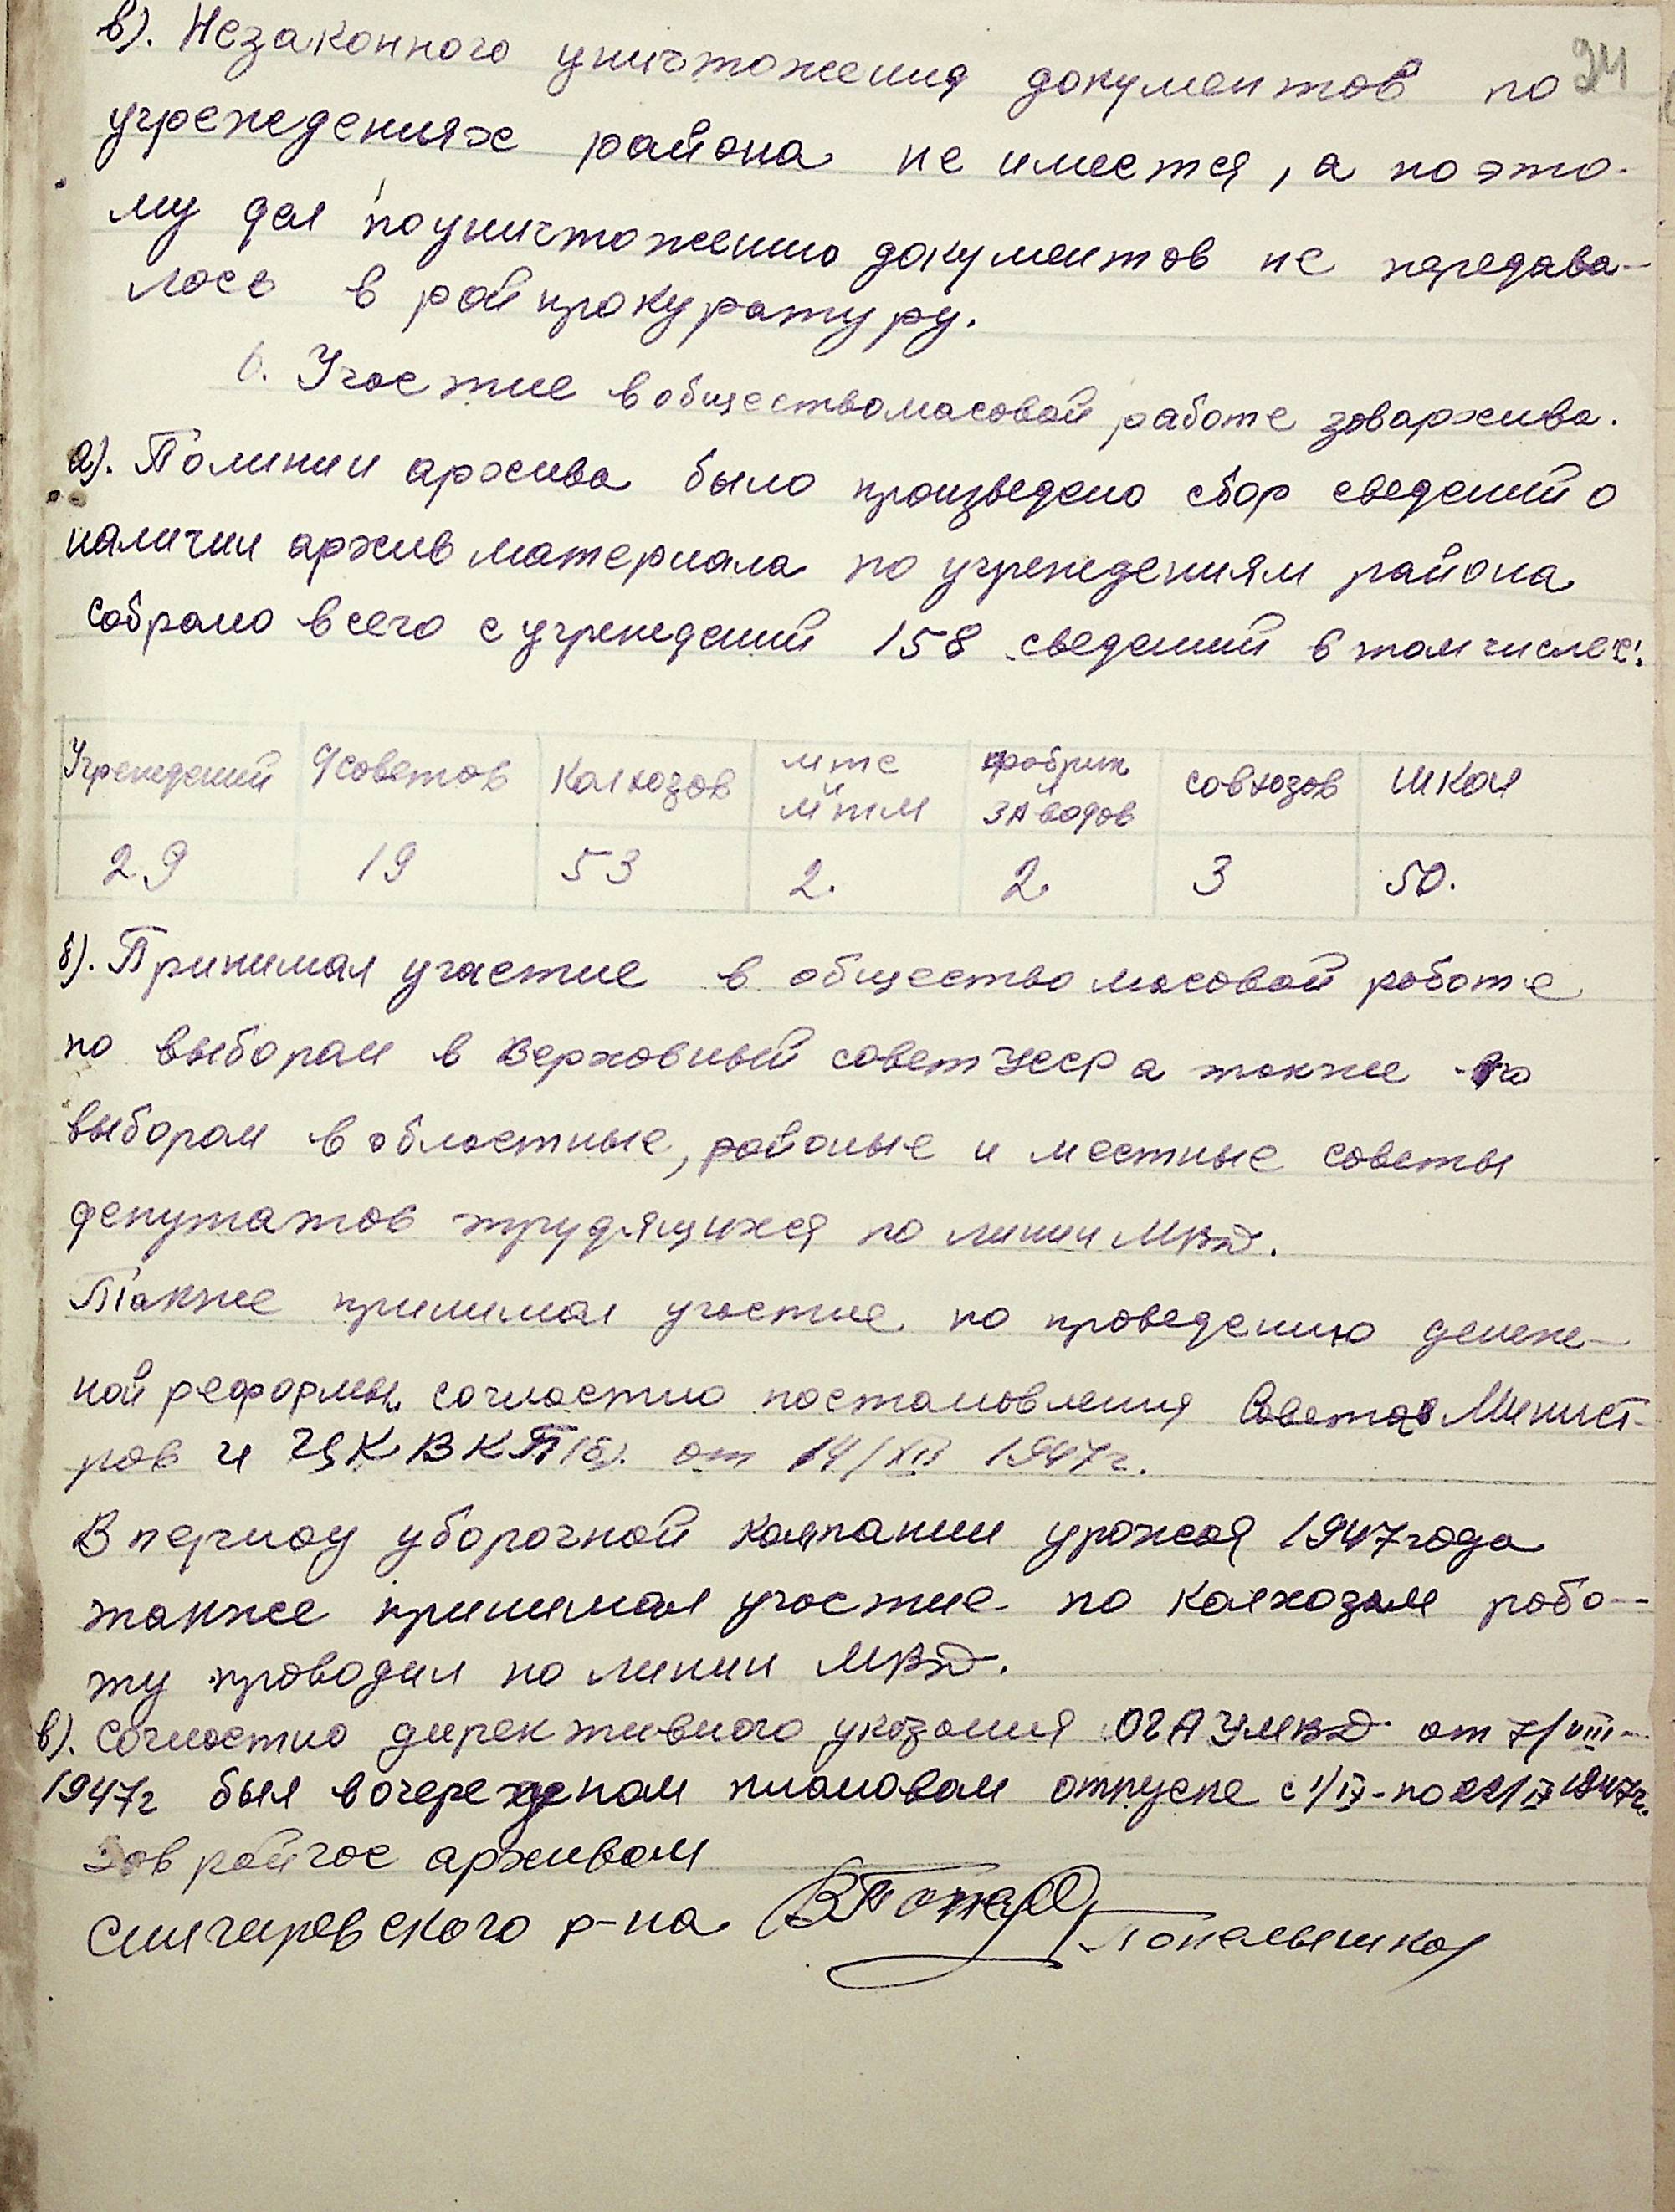 24
в). Незаконного уничтожения документов по
учреждениях района не имеется, а поэто-
му дел по уничтожению документов не передава-
лось в рай прокуратуру.
6. Участие в обществомасовой работе зав архива.
а). По линии архива было произведено сбор сведений о
наличии архив материала по учреждениям района
собрано всего с учреждений 158 сведений в том числе:
Учреждений с/советов колхозов мтс мтм фабрик заводов совхозов школ
29 19 53 2. 2. 3 50.
б). Принимал участие в общество масовой работе
по выборам в Верховный совет УССР а также по
выборам в областные, районые и местные советы
депутатов трудящихся по линии МВД.
Также принимал участие по проведению денеж-
ной реформы согластно постановления Совета Минист-
ров и ЦК ВКП(б). от 14/XII 1947г.
В период уборочной кампании урожая 1947 года
также принимал участие по колхозам рабо-
ту проводил по линии МВД.
в). Согластно директивного указания ОГА УМВД от 7/VIII-
1947г был в очередном плановом отпуске с 1/IX-по 1947г.
Зав райгос архивом
Снигиревского р-на